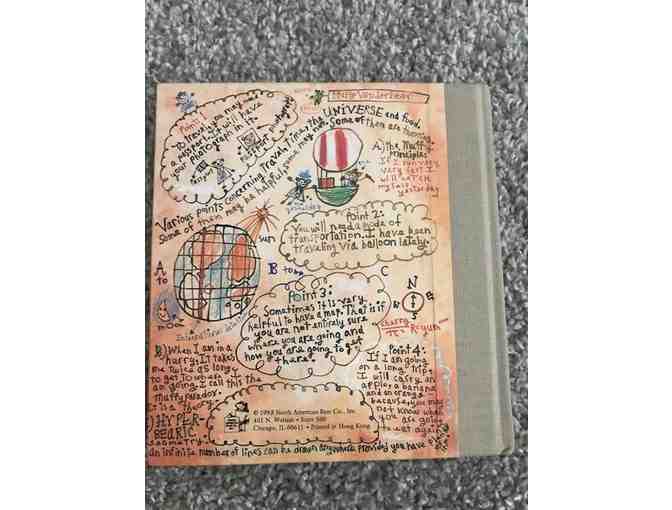 Muffy Vanderbear
Point 1
To travel, you may need
a passport. It will have
your photograph in it.
passport photograph
passport
Various points concerning travel, Time, the UNIVERSE and food.
Some of them may be helpful, some may not. Some of them are
A) The Muffy
principles
If I run very,
very fast I
will catch
myself
yesterday
yesterday
Point 2:
You will need a mode of
transportation. I have been
traveling via balloon lately.
sun
A
to
B to
C
moon
International
Point 3:
Sometimes it is very
helpful to have a map. That is if
you are not entirely sure
where you are going and
how you are going to get
there.
N
S
cherry
π
B) When I am in a
hurry, it takes
me twice as long
to get to where I
am going. I call this the
Muffy paradox.
It is a theory.
HYPER-
BEARIC
geometry:
an infinite number of lines can be drawn anywhere provided you have
Point 4:
If I am going
on a long trip,
I will carry an
apple, a banana
and an orange
because, you may
not know when
you are going
to eat again.
© 1993 North American Bear Co., Inc.
401 N. Wabash • Suite 500
Chicago, IL 60611 • Printed in Hong Kong